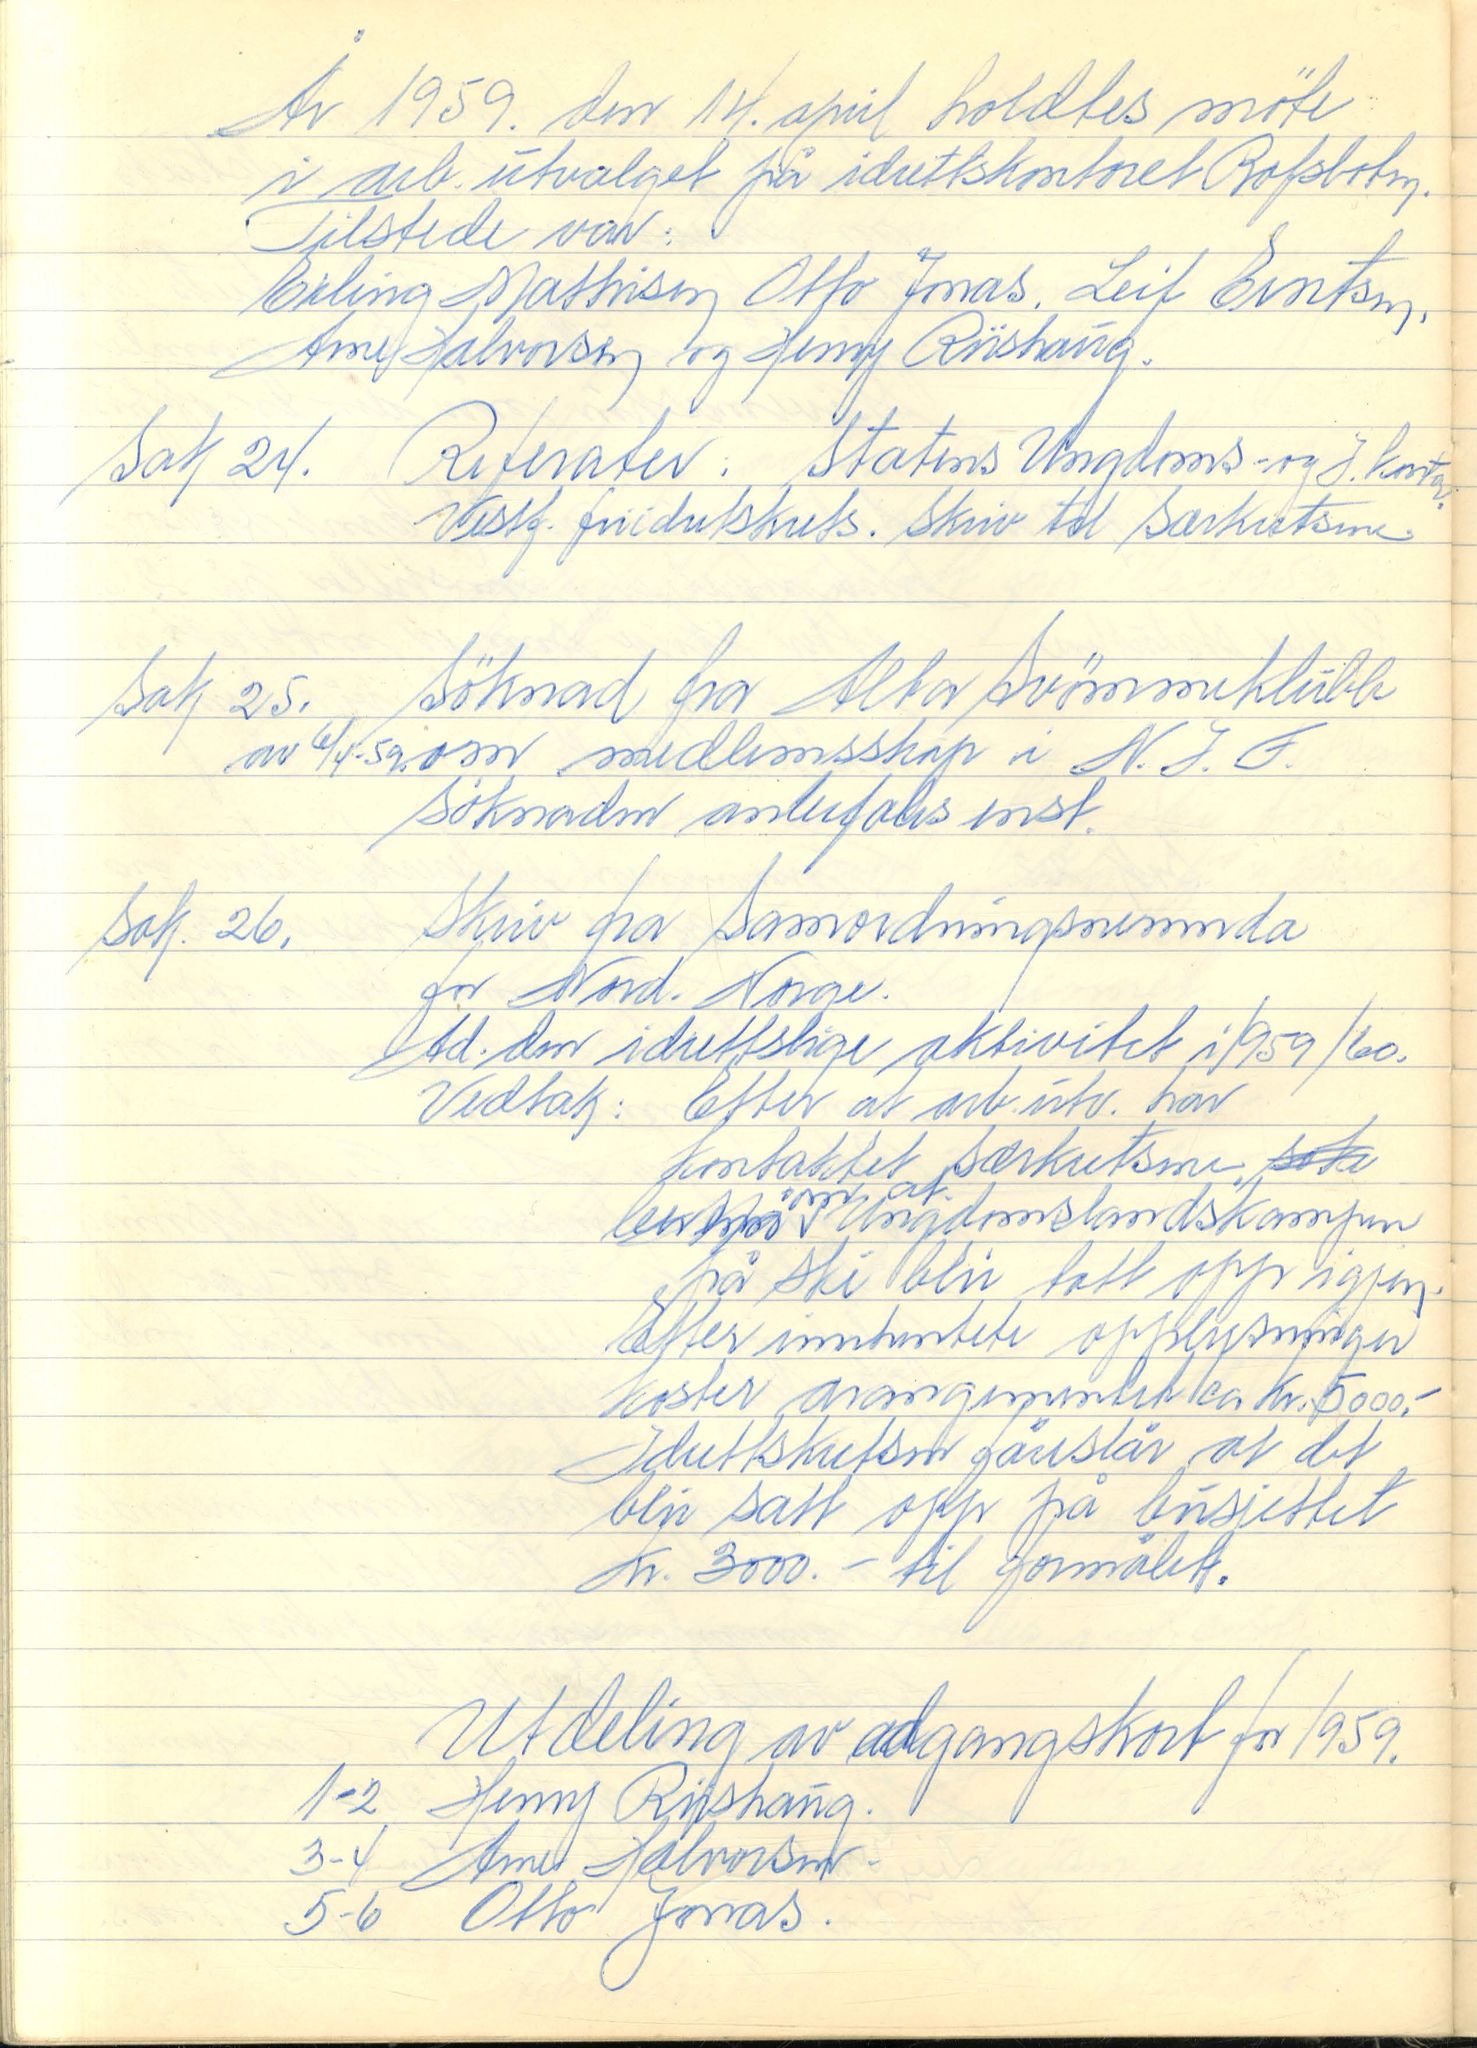 År 1959. den 14. april holdtes möte
i arb. utvalget på idrettskontoret Rafsbotn.
Tilstede var:
Erling Mathisen, Otto Jonas. Leif Erntsen.
Arne Halvorsen og Henry Riishaug.
Sak 24. Referater: Statens Ungdoms- og I. kontor.
Vestf. friidretskrets. Skriv til Særkretsene.
Sak 25. Söknad fra Alta Svömmeklubb
av 6/4-59. om medlemsskap i N.I.F.
Söknaden anbefales enst.
Sak. 26. Skriv fra Samordningsnemnda
for Nord. Norge.
Ad. den idrettslige aktivitet i 1959/60.
Vedtak: Etter at arb. utv. har
kontaktet særkretsene,
ber om at Ungdomslandskampen
på ski blir tatt opp igjen.
Etter innhentete opplysninger
koster arangementet ca. kr. 5000.-
Idrettskretsen påreslår at det
blir satt opp på busjettet
kr. 3000.- til formålet.
Utdeling av adgangskort for 1959.
1-2 Henry Riishaug.
3-4 Arne Halvorsen-
5-6 Otto Jonas.